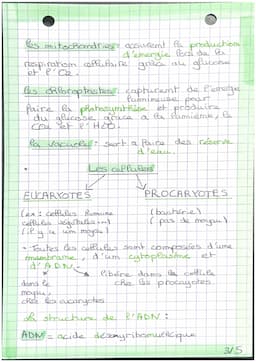 Les mitochondries: assurent la production
d'énergie lors de la
respiration cellulaire grâce au glucose
et l'O2.
Les chloroplastes: capturent de l'énergie
lumineuse pour
faire la photosynthèse et produire
du glucose grâce a la lumière, le
CO2 et l'H2O.
La vacuole: sert a faire des réserve
d'eau.
Les cellules
EUCARYOTES PROCARYOTES
(ex: cellules humaine (bactérie)
cellules végétales...) (pas de noyau)
(il y a un noyau)
• Toutes les cellules sont composées d'une
membrane, d'un cytoplasme et
d'ADN.
dans le libère dans la cellule
noyau chez les procaryotes
chez les eucaryotes
La structure de l'ADN:
ADN = acide désoxyribonucléique
3/5